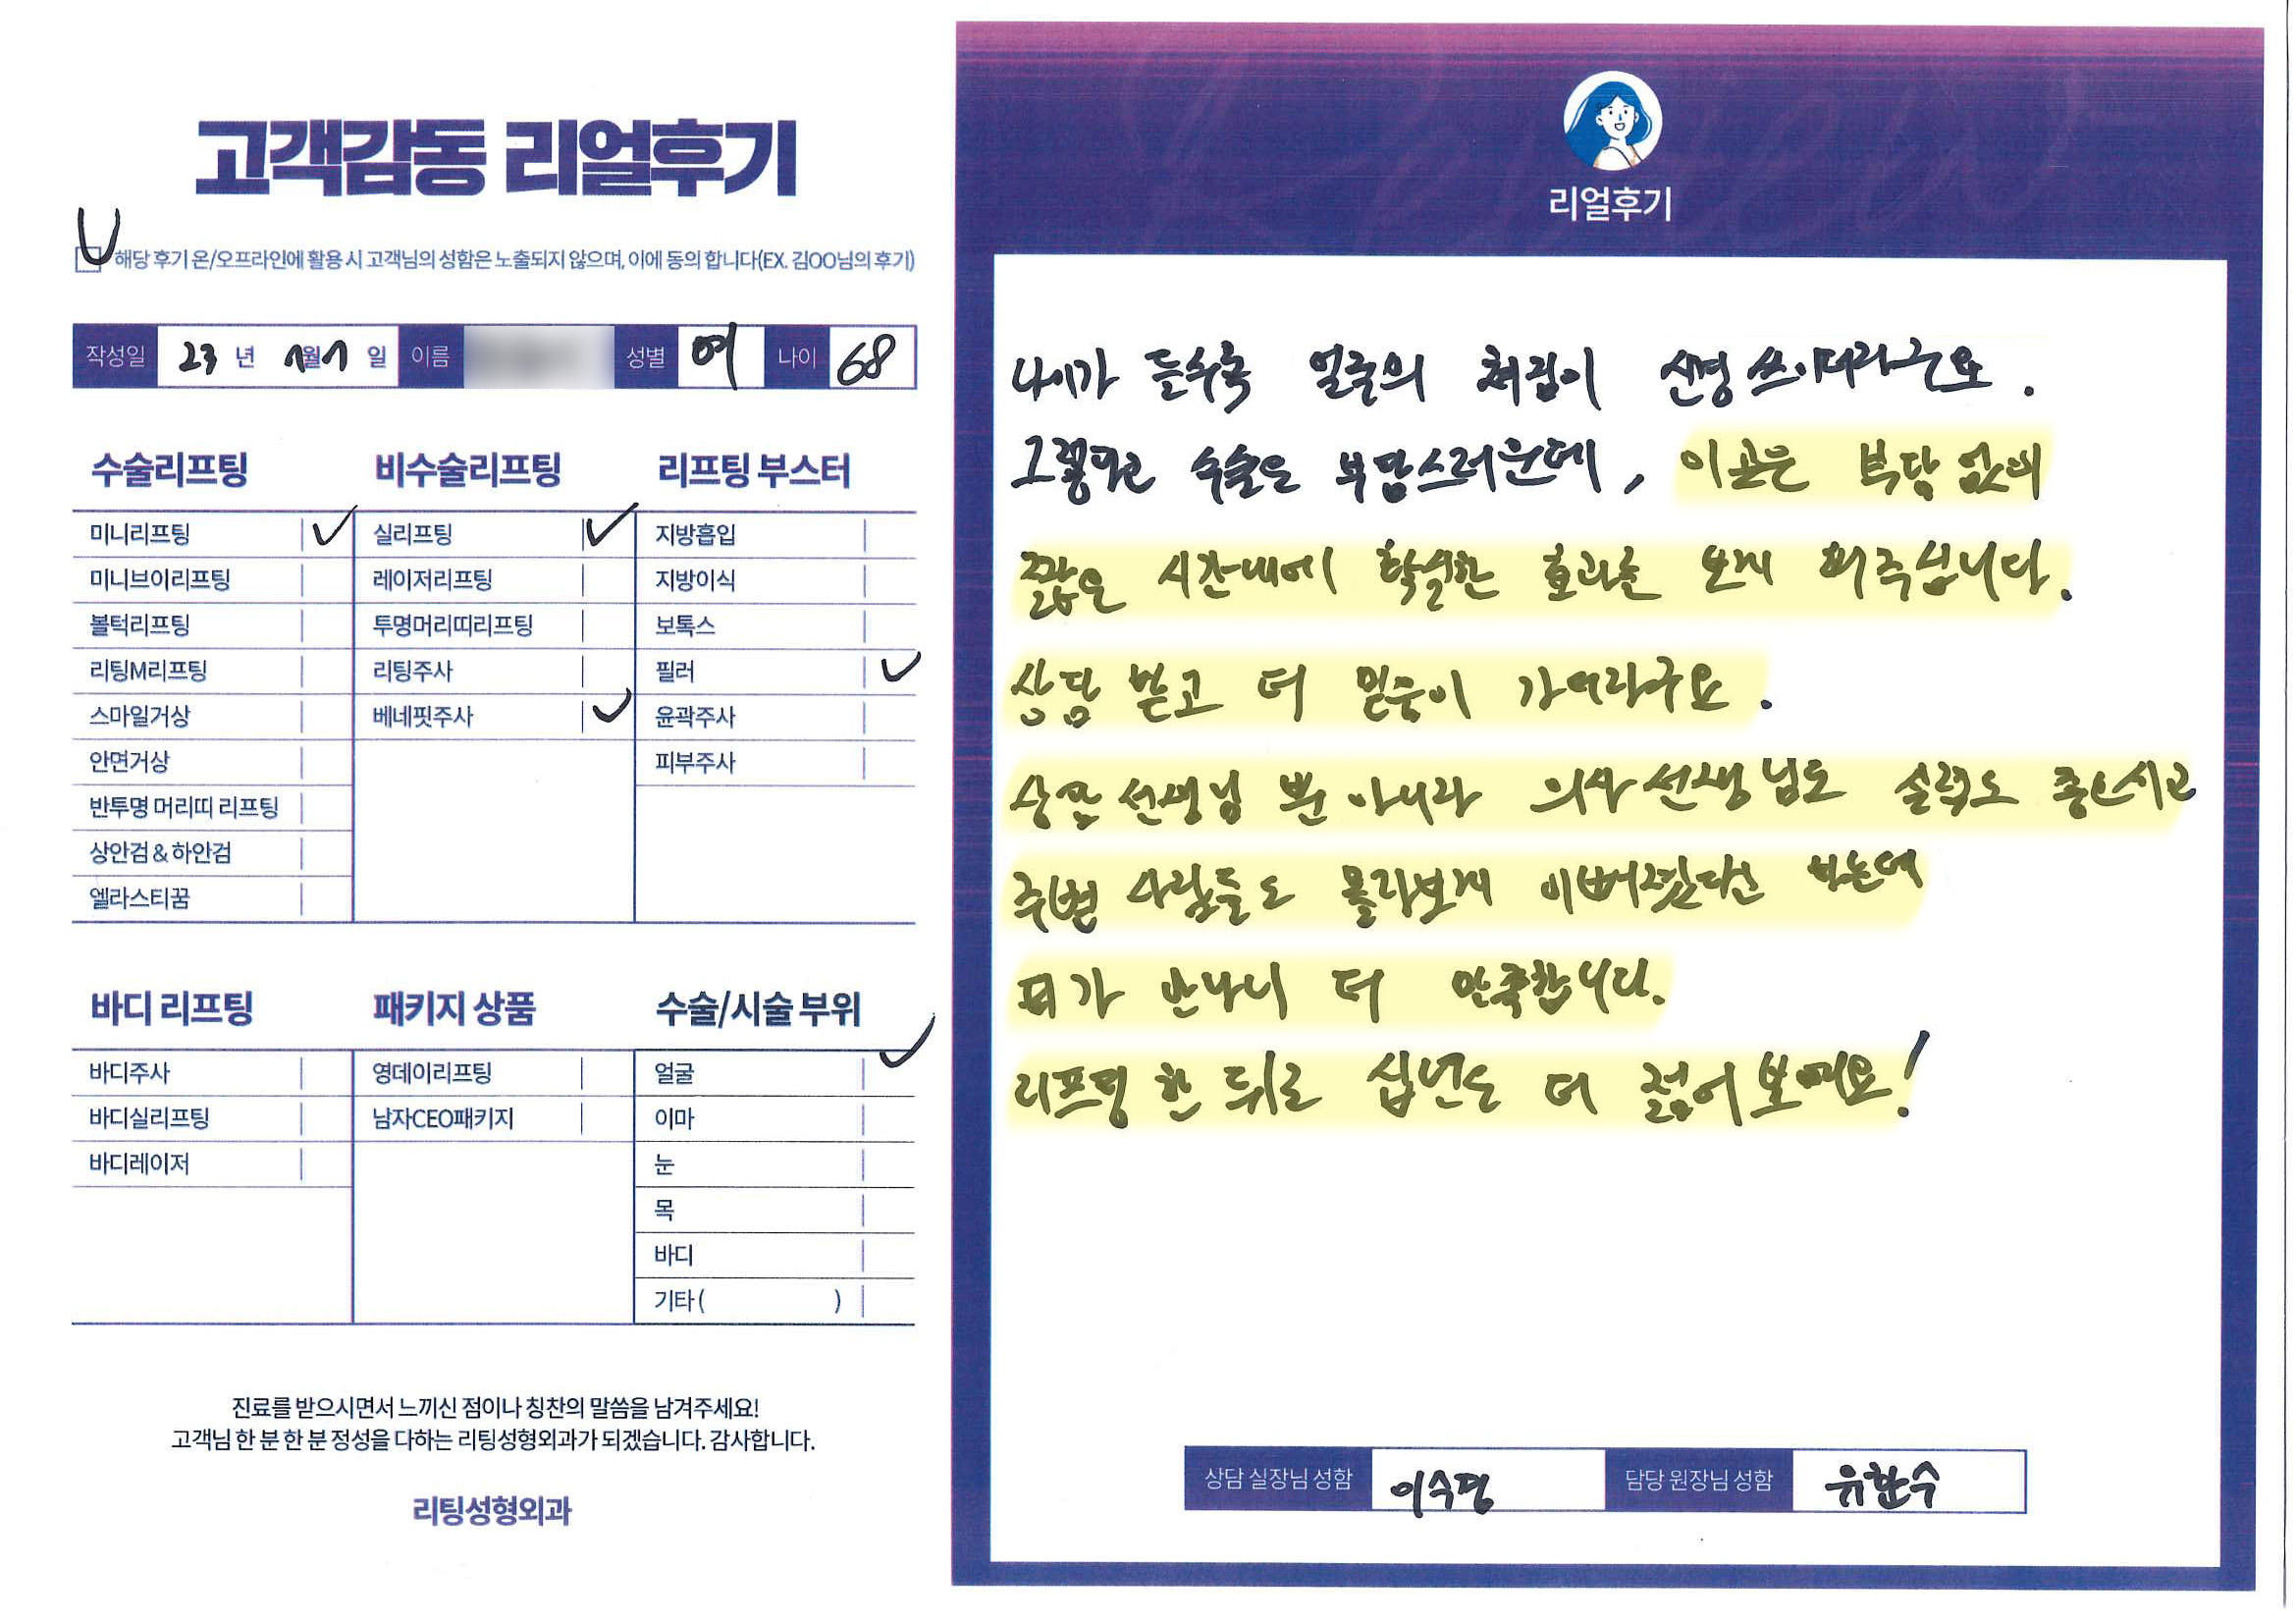 고객감동 리얼후기
해당 후기 온/오프라인에 활용 시 고객님의 성함은 노출되지 않으며, 이에 동의 합니다(EX. 김OO님의 후기)
작성일 23 년 1월 1 일 이름 성별 여 나이 68
수술리프팅
미니리프팅
미니브이리프팅
볼턱리프팅
리팅M리프팅
스마일거상
안면거상
반투명 머리띠 리프팅
상안검 & 하안검
엘라스티꿈
비수술리프팅
실리프팅
레이저리프팅
투명머리띠리프팅
리팅주사
베네핏주사
리프팅 부스터
지방흡입
지방이식
보톡스
필러
윤곽주사
피부주사
바디 리프팅
바디주사
바디실리프팅
바디레이저
패키지 상품
영데이리프팅
남자CEO패키지
수술/시술 부위
얼굴
이마
눈
목
바디
기타 ( )
진료를 받으시면서 느끼신 점이나 칭찬의 말씀을 남겨주세요!
고객님 한 분 한 분 정성을 다하는 리팅성형외과가 되겠습니다. 감사합니다.
리팅성형외과
리얼후기
나이가 들수록 얼굴의 쳐짐이 신경 쓰이더라구요.
그렇다고 수술은 부담스러운데, 이곳은 부담 없이
짧은 시간내에 확실한 효과를 보게 해주십니다.
상담 받고 더 믿음이 가더라구요.
상담 선생님 뿐 아니라 의사 선생님도 실력도 좋으시고
주변 사람들도 몰라보게 이뻐졌다고 하는데
티가 안나니 더 만족합니다.
리프팅 한 뒤로 십년은 더 젊어 보여요!
상담 실장님 성함 이수정
담당 원장님 성함 유한수